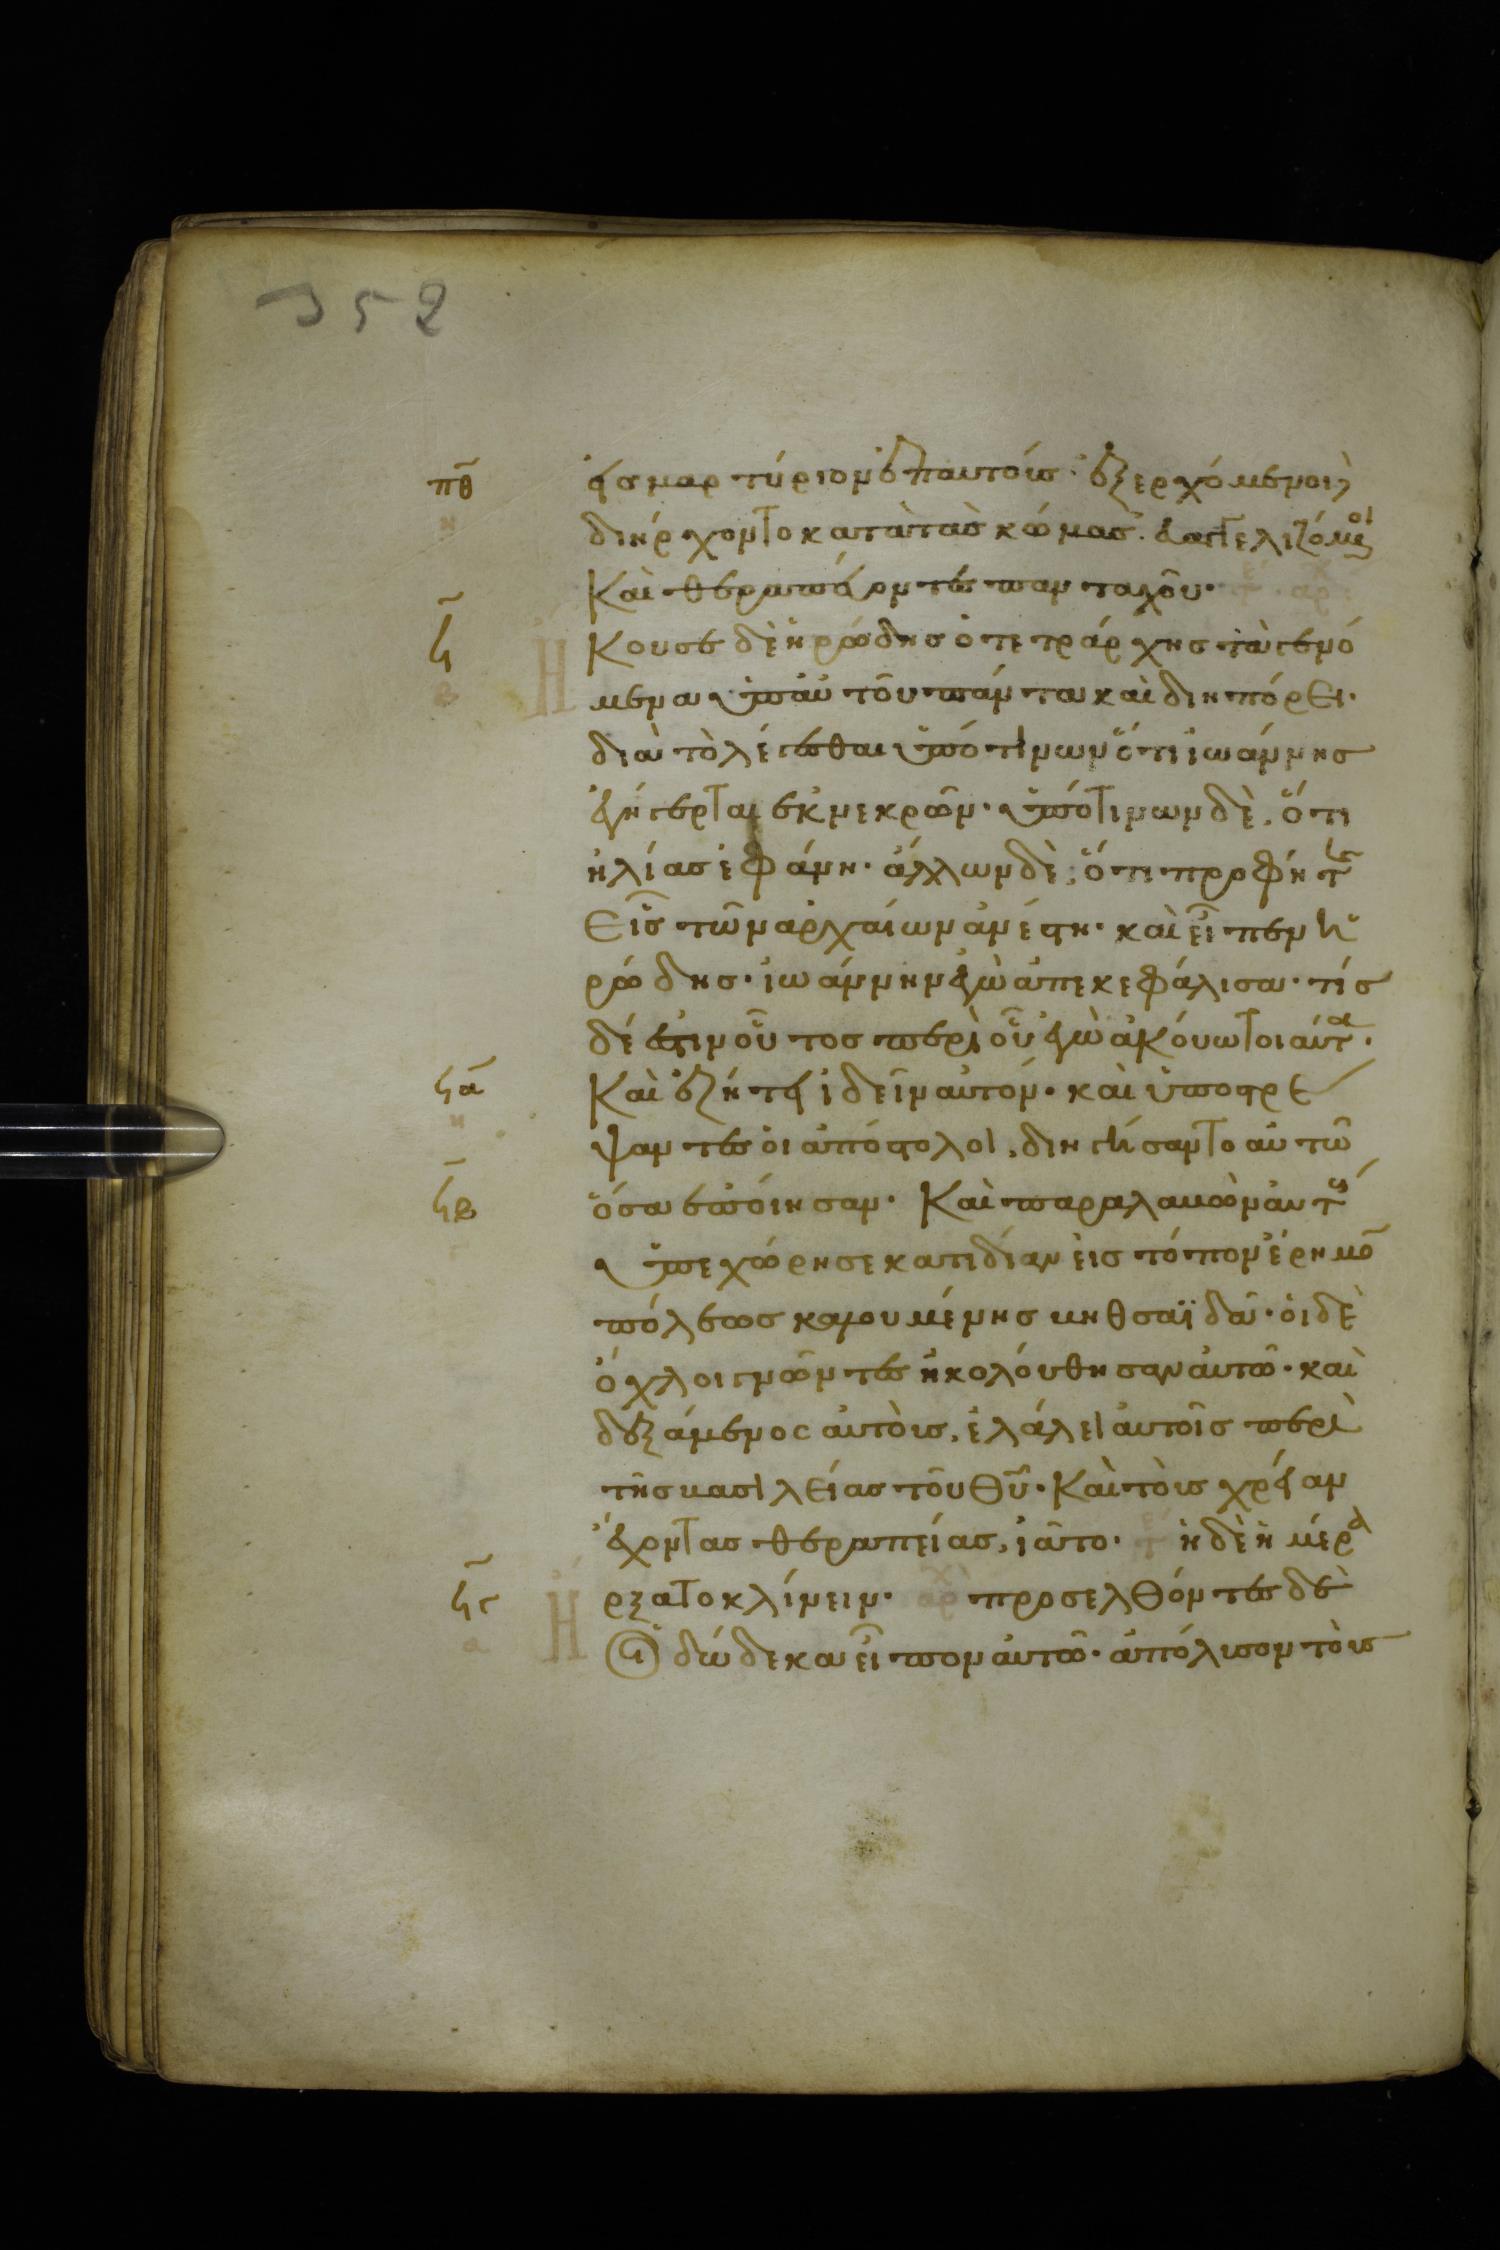 352
πθ εἰς μαρτύριον ἐπ αυτοῖς· ἐξερχόμενοι δὲ
διήρχοντο κατὰ τὰς κώμας· εὐαγγελιζόμενοι
Καὶ θεραπεύοντες πανταχοῦ·
Ϟ Ἤ Κουσε δὲ ἡρώδης ὁ τετράρχης τὰ γενό
μενα ὑπ αὐτοῦ πάντα καὶ διηπόρει·
διὰ τὸ λέγεσθαι ὑπό τινων ὅτι ἰωάννης
ἐγήγερται ἐκ νεκρῶν· ὑπό τινων δὲ, ὅτι
ἠλίας ἐφάνη· ἄλλων δὲ, ὅτι προφήτης
Εἷς τῶν ἀρχαίων ἀνέστη· καὶ εἶπεν ἡ
ρώδης· ἰωάννην ἐγὼ ἀπεκεφάλισα· τίς
δέ ἐστιν οὗτος περὶ οὗ ἐγὼ ἀκούω τοιαῦτα·
Ϟα Καὶ ἐζήτει ἰδεῖν αὐτόν· καὶ ὑποστρέ
ψαντες οἱ ἀπόστολοι, διηγήσαντο αὐτῶ
Ϟβ ὅσα ἐποίησαν· Καὶ παραλαβὼν αὐτοὺς
ὑπεχώρησε κατιδίαν εἰς τόπον ἔρημον
πόλεως καλουμένης βηθσαϊδά· οἱ δὲ
ὄχλοι γνῶντες ἠκολούθησαν αὐτῶ· καὶ
δεξάμενος αὐτοὺς, ἐλάλει αὐτοῖς περὶ
τῆς βασιλείας τοῦ θυ· Καὶ τοὺς χρείαν
ἔχοντας θεραπείας, ἰᾶτο· ἡ δὲ ἡμέρα
Ϟγ Ἤ ρξατο κλίνειν· προσελθόντες δὲ
οἱ δώδεκα εἶπον αὐτῶ· ἀπόλυσον τοὺς